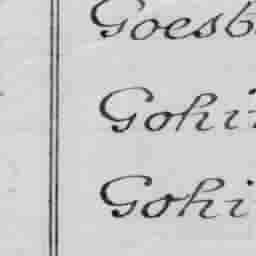 Goesb
Gohi
Gohi